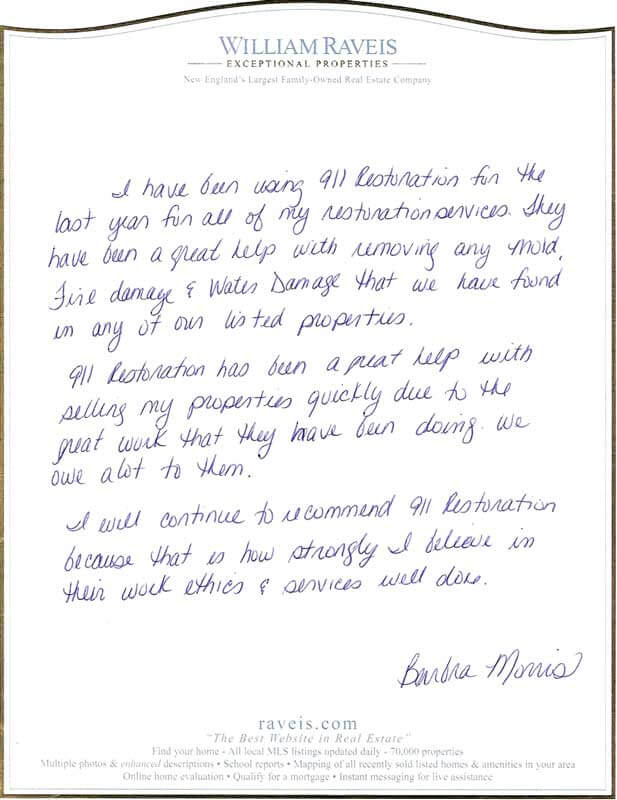 WILLIAM RAVEIS
EXCEPTIONAL PROPERTIES
New England's Largest Family-Owned Real Estate Company
I have been using 911 Restoration for the
last year for all of my restoration services. They
have been a great help with removing any mold,
Fire damage & Water Damage that we have found
in any of our listed properties.
911 Restoration has been a great help with
selling my properties quickly due to the
great work that they have been doing. We
owe alot to them.
I will continue to recommend 911 Restoration
because that is how strongly I believe in
their work ethics & services well done.
Barbra Morris
raveis.com
"The Best Website in Real Estate"
Find your home - All local MLS listings updated daily - 70,000 properties
Multiple photos & enhanced descriptions • School reports • Mapping of all recently sold listed homes & amenities in your area
Online home evaluation • Qualify for a mortgage • Instant messaging for live assistance